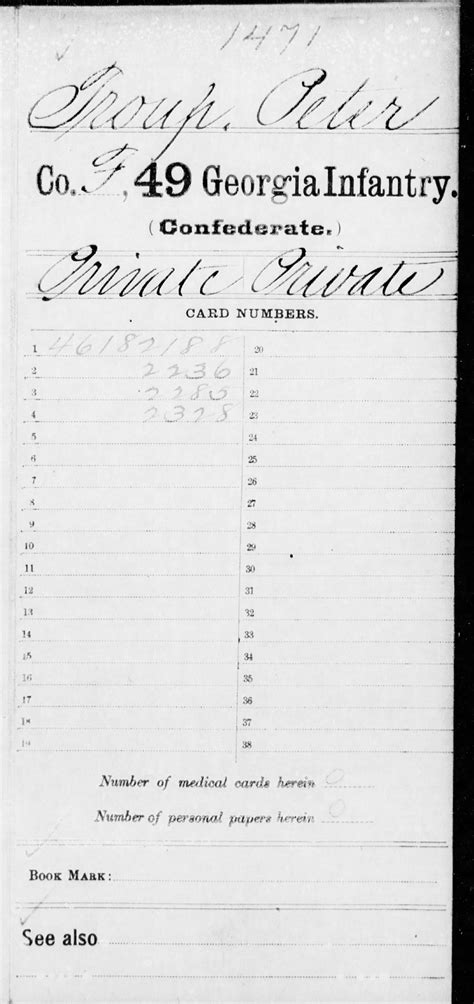 1471
Troup, Peter
Co. F, 49 Georgia Infantry.
(Confederate.)
Private Private
CARD NUMBERS.
1 46182188 20
2 2236 21
3 2285 22
4 2328 23
5 24
6 25
7 26
8 27
9 28
10 29
11 30
12 31
13 32
14 33
15 34
16 35
17 36
18 37
19 38
Number of medical cards herein 0
Number of personal papers herein 0
BOOK MARK:
See also